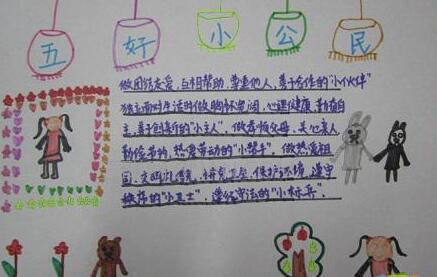 五好小公民
做团结友爱,互相帮助,尊重他人,善于合作的"小伙伴"
独立面对生活时做胸怀宽阔,心理健康,勤奋自
主,善于创新的"小主人",做孝顺父母,关心亲人
勤俭节约,热爱劳动的"小帮手",做热爱祖
国,文明礼貌,讲究卫生,保护环境,遵守
秩序的"小卫士",遵纪守法的"小标兵"。